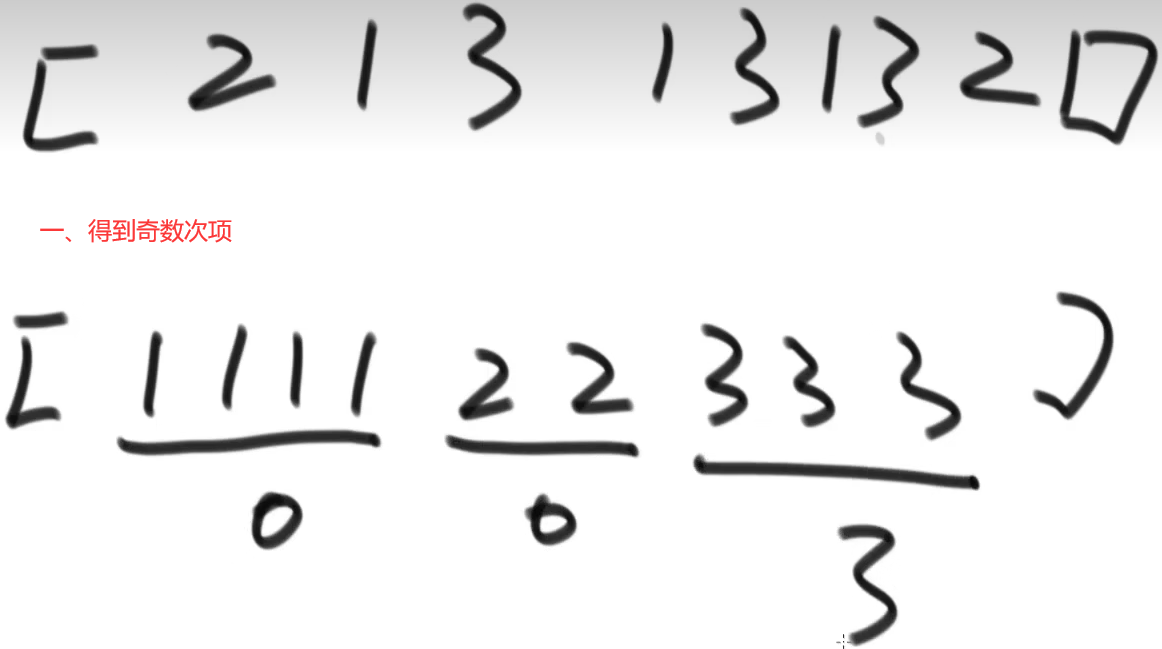 [ 2 1 3 1 3 1 3 2 ]
一、得到奇数次项
[ 1 1 1 1 2 2 3 3 3 ]
0 0 3